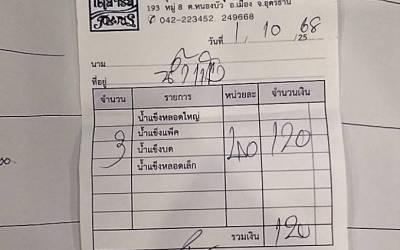 193 หมู่ 8 ต.หนองบัว อ.เมือง จ.อุดรธานี
042-223452 249668
วันที่ 1 / 10 / 2568
นาม
ที่อยู่
จำนวน รายการ หน่วยละ จำนวนเงิน
น้ำแข็งหลอดใหญ่
3 น้ำแข็งแพ็ค 40 120
น้ำแข็งบด
น้ำแข็งหลอดเล็ก
รวมเงิน 120